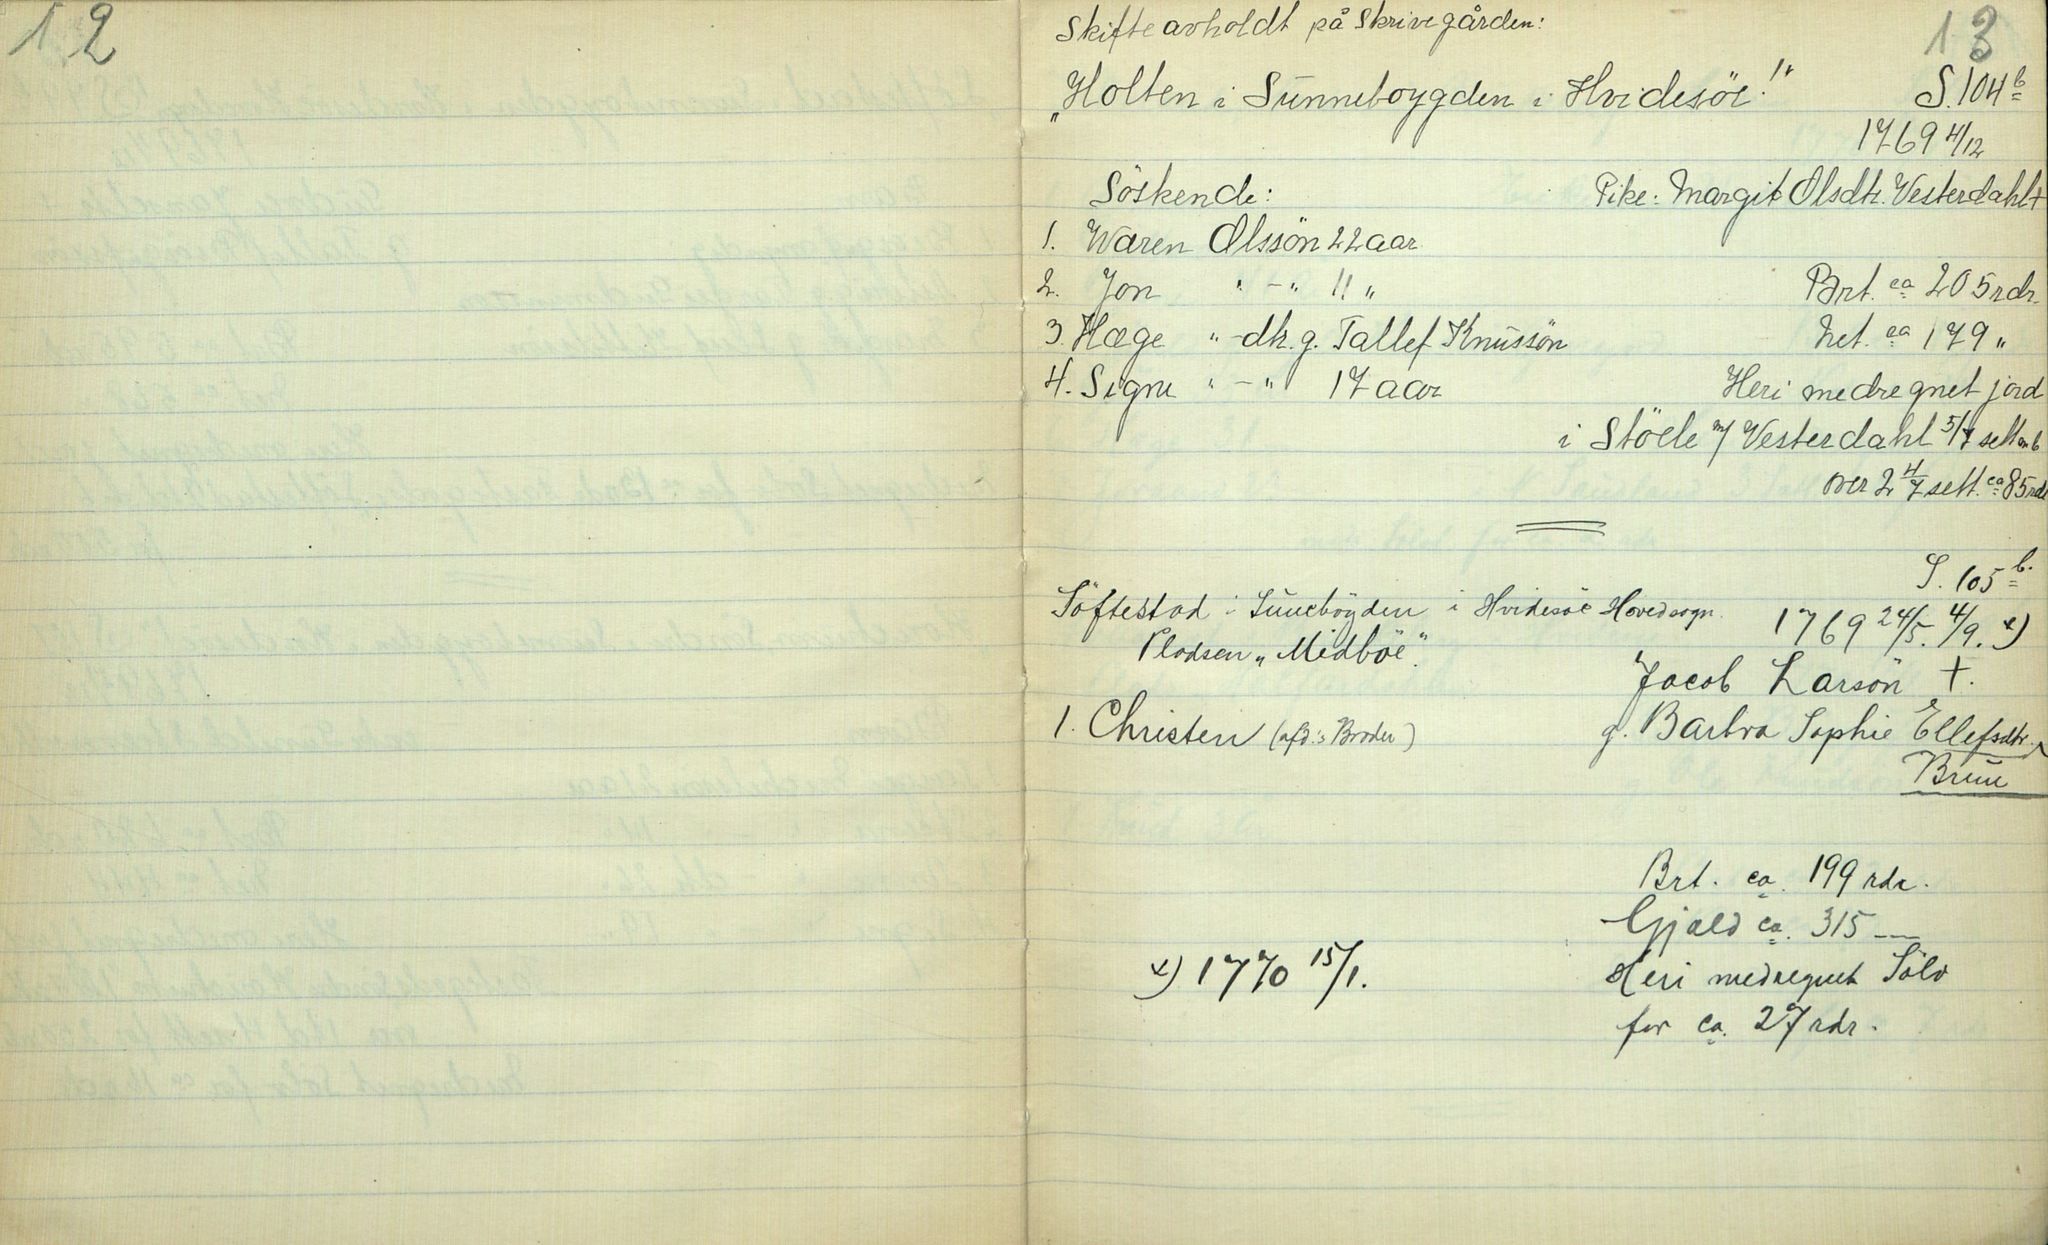 12
13
Skifte avholdt på Skrivegården:
„Holten i Sünneboygden i Hvidesöe!" S. 104 b
1769 4/12
Söskende: Pike: Margit Olsdtr. Vesterdahl +
1. Waren Olssön 22 aar
2. Jon " - " 11 " Brt. ca 205 rdr.
3. Hæge " - dtr. g. Tallef Knüssön Net. ca 179 "
4. Signe " - " 17 aar Heri medregnet jord
i Stöele m/ Vesterdahl 5/7 sett
over 2 4/7 sett. ca 85 rdr
S. 105 b.
Söftestad i Sünebögden i Hvidesöe Hovedsogn. 1769 24/5. 4/9. x)
Pladsen „Midböe".
Jacob Larsön +.
1. Christen (afd.'s Broder) g. Barbra Sophie Ellefsdtr.
Bruu
Brt. ca. 199 rdr.
Gjæld ca. 315 —
x) 1770 15/1. Heri medregnet Sölv
for ca. 27 rdr.